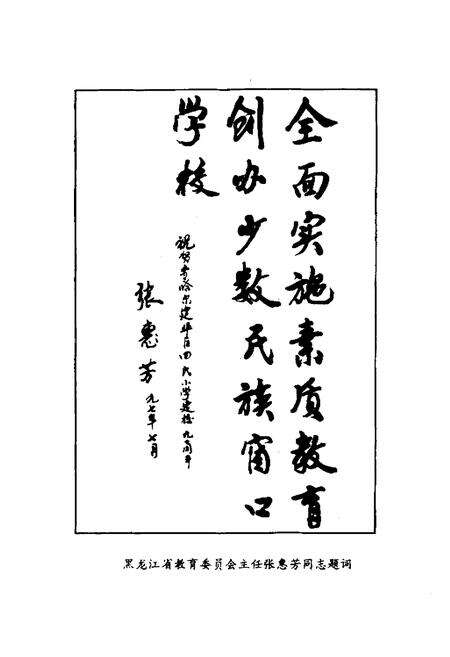 全面实施素质教育
创办少数民族窗口
学校
祝贺齐哈尔建华区回民小学建校九周年
张惠芳
九七年七月
黑龙江省教育委员会主任张惠芳同志题词